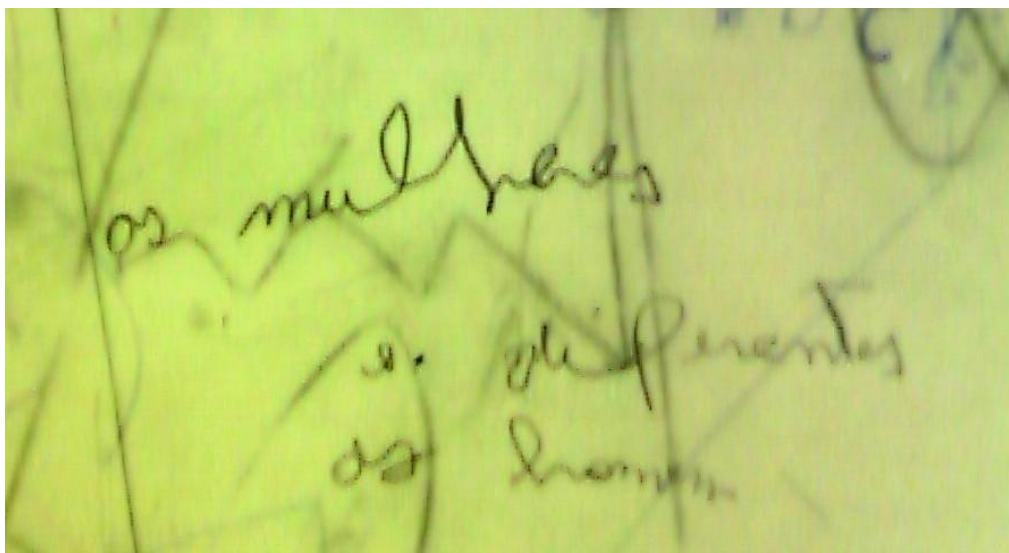 as mulheres
e. diferentes
os homem